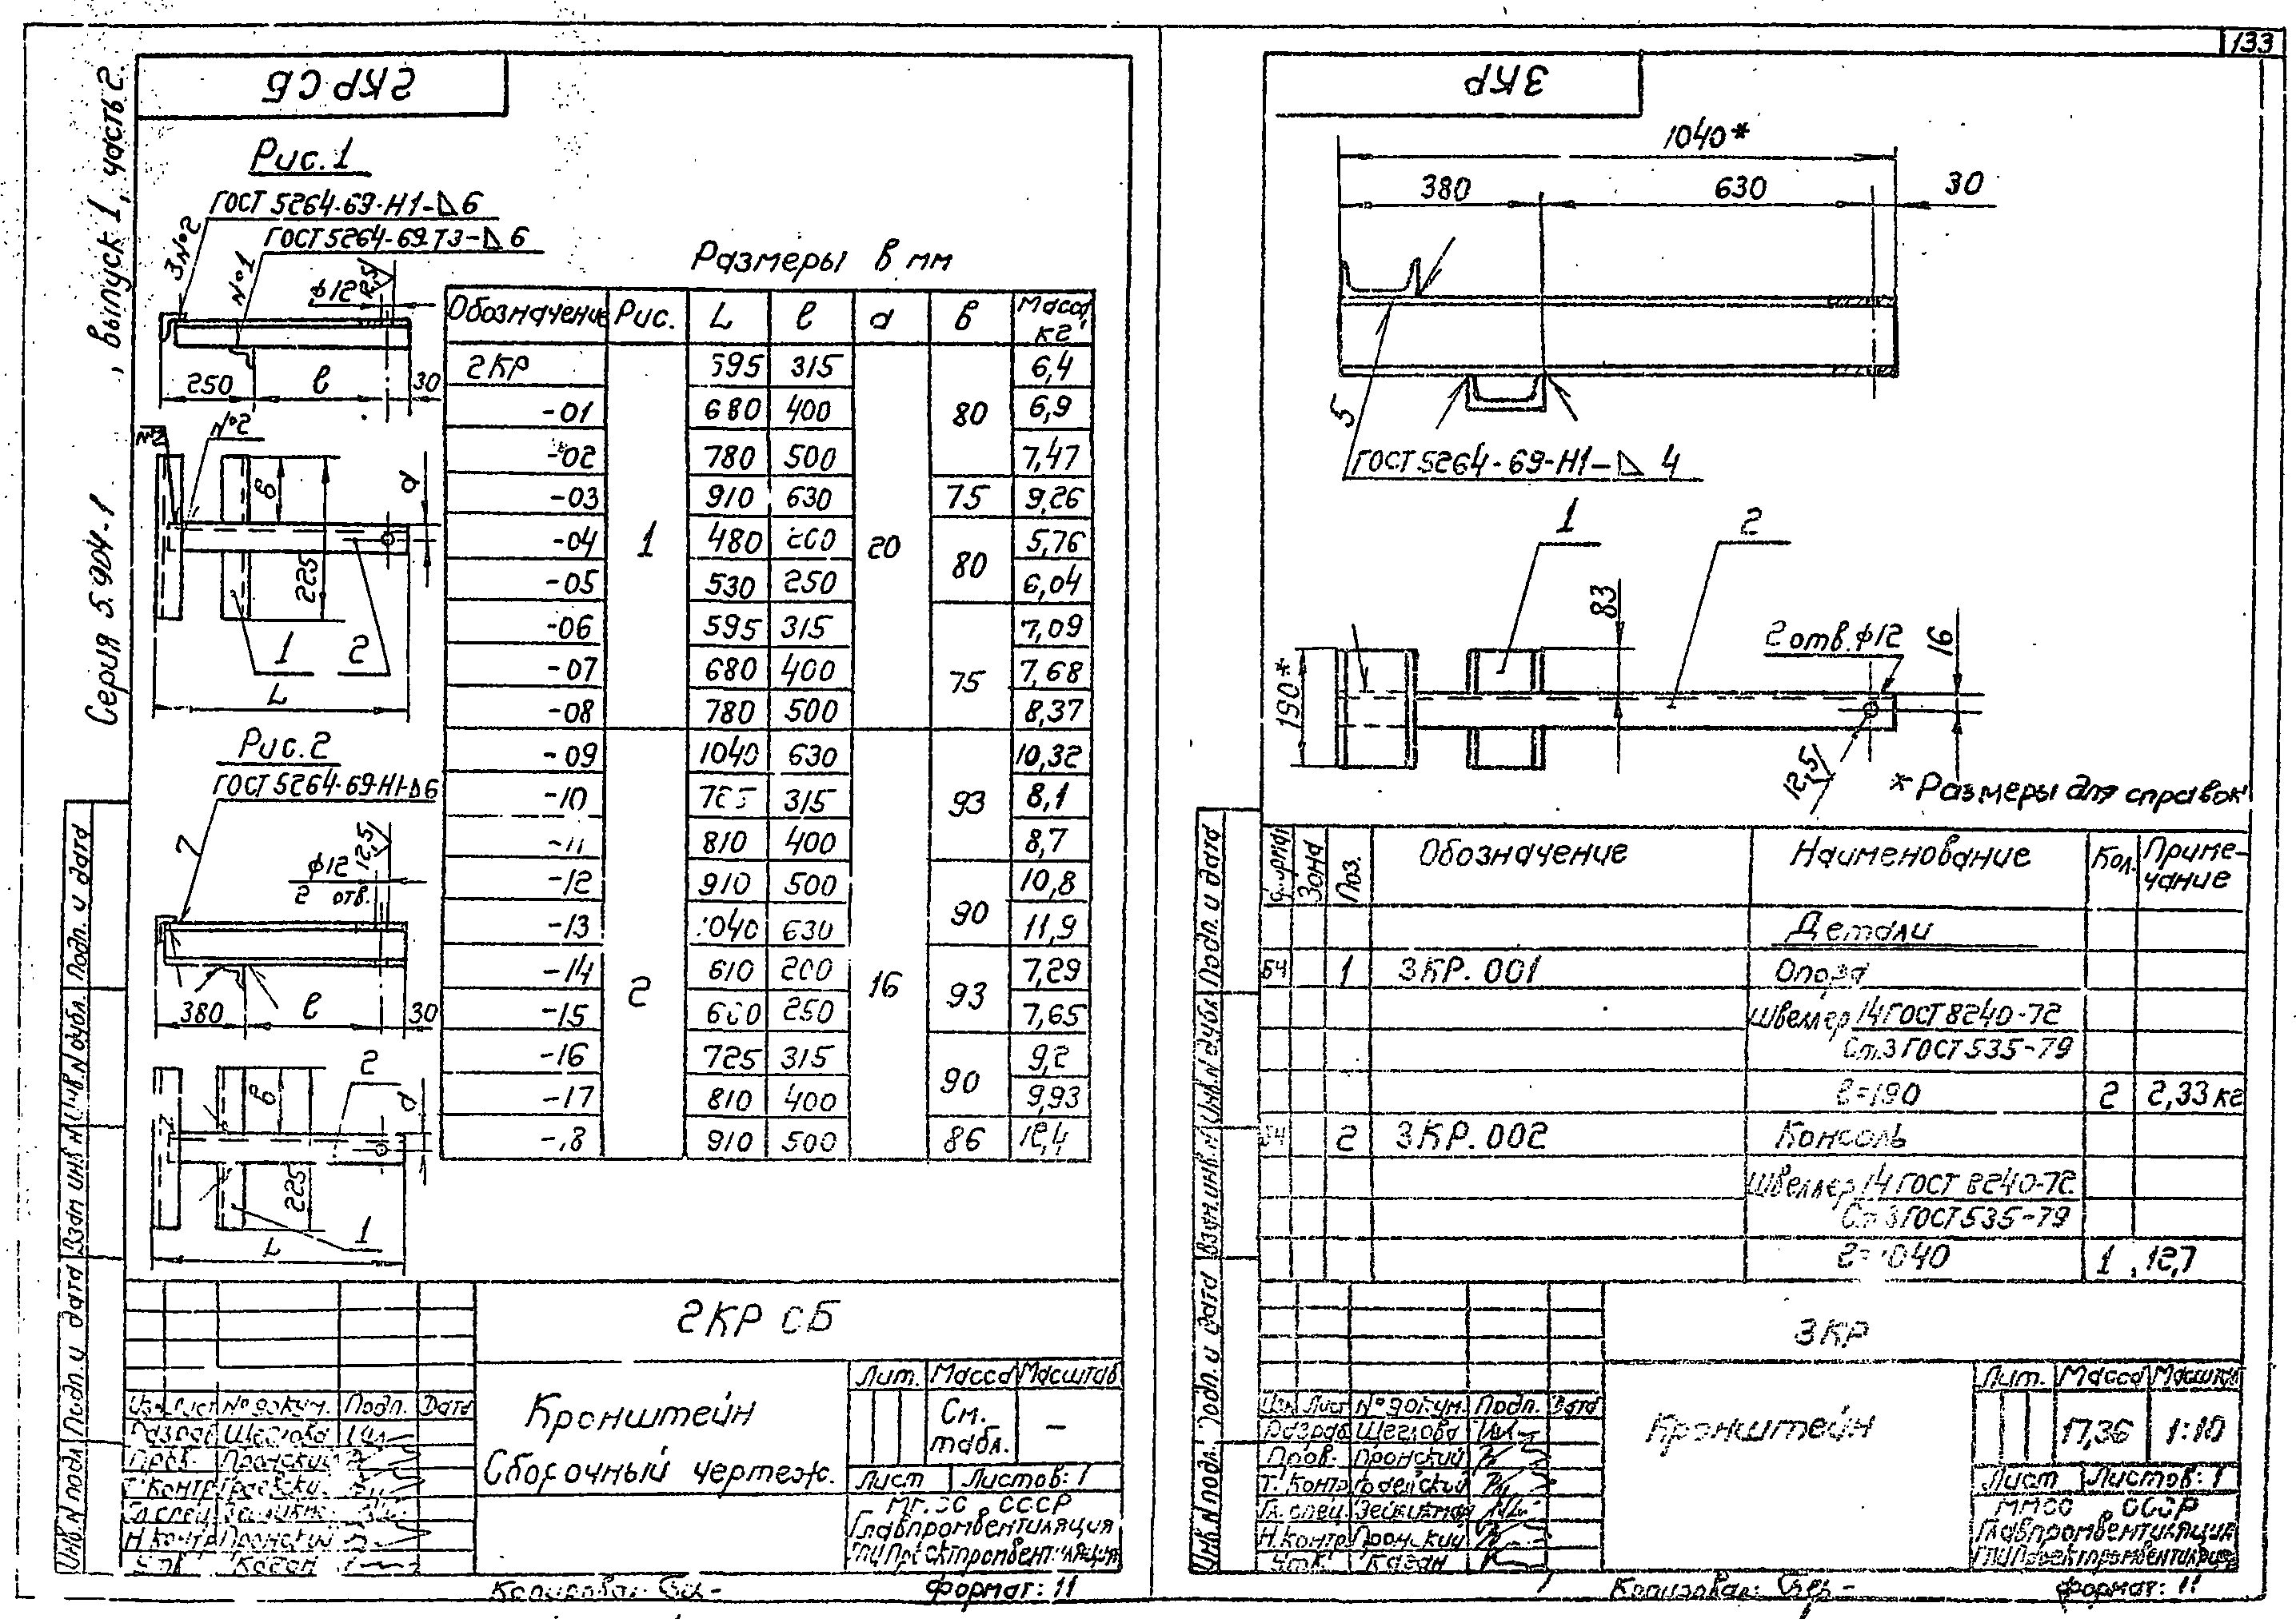 133
Серия 5.904-1 , выпуск 1, часть 2.
2КР СБ
Рис.1
ГОСТ 5264-69-Н1-⊿6
ГОСТ 5264-69-Т3-⊿6
3 №2
№1
ф12
250
l
30
№2
№2
в
d
225
1
2
L
Рис.2
ГОСТ 5264-69-Н1-⊿6
ф12
12,5
2 отв.
380
l
30
2
в
d
225
1
L
Размеры в мм
Обозначение Рис. L l d в Масса, кг
2КР 1 595 315 20 80 6,4
-01 680 400 6,9
-02 780 500 7,47
-03 910 630 75 9,26
-04 480 200 80 5,76
-05 530 250 6,04
-06 595 315 75 7,09
-07 680 400 7,68
-08 780 500 8,37
-09 2 1040 630 16 93 10,32
-10 315 8,1
-11 810 400 8,7
-12 910 500 90 10,8
-13 1040 630 11,9
-14 610 200 93 7,29
-15 660 250 7,65
-16 725 315 90 9,2
-17 810 400 9,93
-18 910 500 86 12,4
2КР СБ
Кронштейн
Сборочный чертеж.
Лит. Масса Масштаб
См. табл. —
Лист Листов: 1
СССР
Главпромвентиляция
Изм. Лист № докум. Подп. Дата
Разраб. Щеглова
Пров. Пронский
Т. контр.
Гл. спец.
Н. контр. Пронский
Каган
Подп. и дата
Инв. N дубл.
Взам инв. N
Подп. и дата
Инв. N подл.
Копировал:
Формат: 11
3КР
1040*
380
630
30
5
ГОСТ 5264-69-Н1-⊿ 4
1
2
83
2 отв. ф12
16
190*
12,5
* Размеры для справок
Формат Зона Поз. Обозначение Наименование Кол. Примечание
Детали
БЧ 1 3КР.001 Опора
Швеллер 14 ГОСТ 8240-72
Ст.3 ГОСТ 535-79
l=190 2 2,33 кг
БЧ 2 3КР.002 Консоль
Швеллер 14 ГОСТ 8240-72
Ст.3 ГОСТ 535-79
l=1040 1 12,7
3КР
Кронштейн
Лит. Масса Масштаб
17,36 1:10
Лист Листов: 1
ММСС СССР
Главпромвентиляция
Изм. Лист № докум. Подп. Дата
Разраб. Щеглова
Пров. Пронский
Т. контр.
Гл. спец.
Н. контр. Пронский
Каган
Подп. и дата
Инв. N дубл.
Взам. инв. N
Подп. и дата
Инв. N подл.
Копировал:
Формат: 11